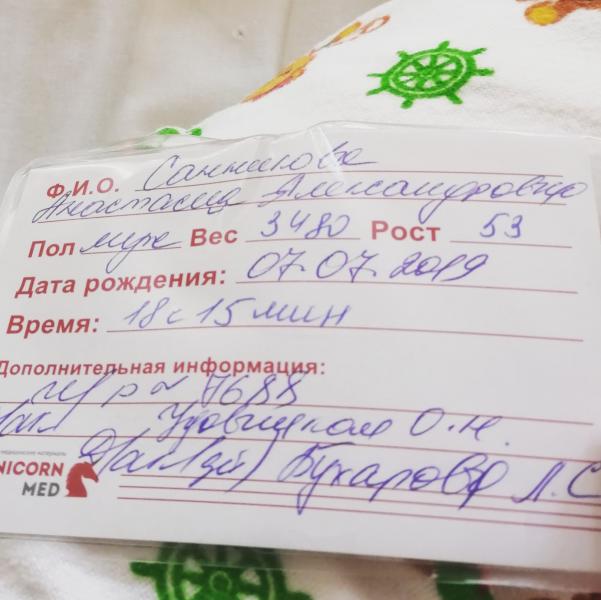 Ф.И.О. Санникова
Анастасия Александровна
Пол муж Вес 3480 Рост 53
Дата рождения: 07.07.2019
Время: 18 ч 15 мин
Дополнительная информация:
7688
О.Н.
Бухарова Л.С
NICORN
MED